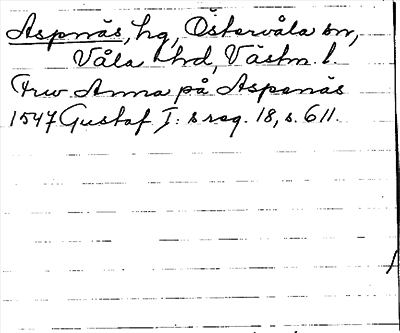 Aspnäs, hg, Östervåla sn,
Våla hd, Västm. l.
Fru Anna på Aspenäs
1547 Gustaf I:s reg. 18, s. 611.